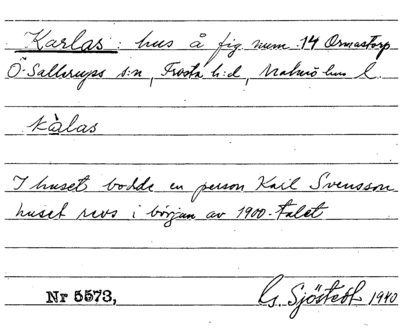 Karlas: hus å fig num. 14 Ormastorp
Ö. Sallerups s:n, Frosta h:d, Malmöhus l.
kàlas
I huset bodde en person Karl Svensson
huset revs i början av 1900-talet
Nr 5573, G. Sjöstedt 1940